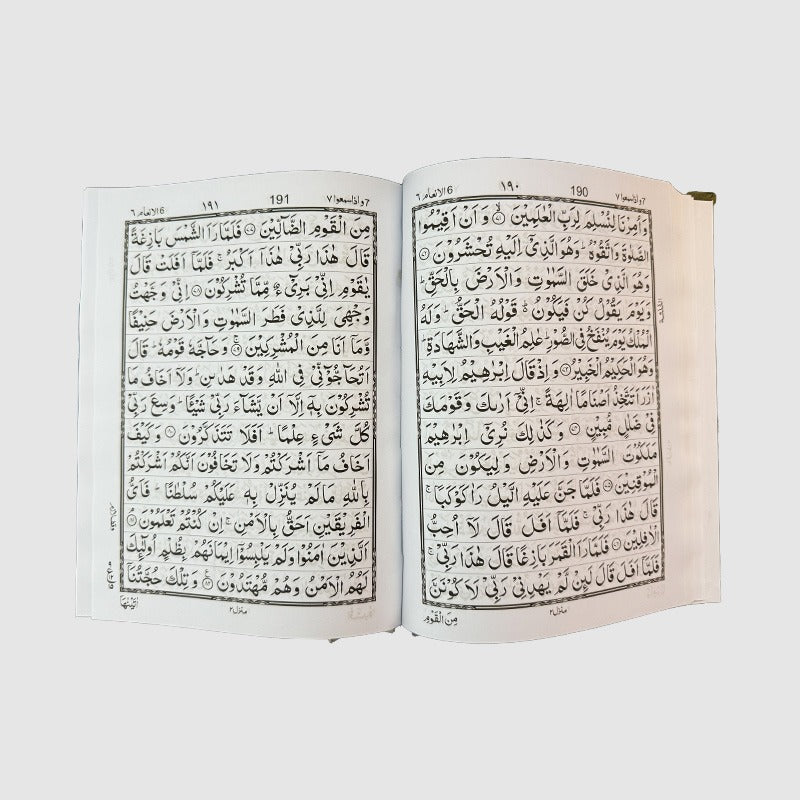 ٦ الانعام 6
١٩٠
190
7 واذا سمعوا ٧
وَاُمِرْنَا لِنُسْلِمَ لِرَبِّ الْعٰلَمِیْنَ ۙ۷۱ وَ اَنْ اَقِیْمُوا
الصَّلٰوةَ وَاتَّقُوْهُ ؕ وَهُوَ الَّذِیْۤ اِلَیْهِ تُحْشَرُوْنَ ۷۲
وَهُوَ الَّذِیْ خَلَقَ السَّمٰوٰتِ وَالْاَرْضَ بِالْحَقِّ ؕ
وَیَوْمَ یَقُوْلُ كُنْ فَیَكُوْنُ ؕ قَوْلُهُ الْحَقُّ ؕ وَلَهُ
الْمُلْكُ یَوْمَ یُنْفَخُ فِی الصُّوْرِ ؕ عٰلِمُ الْغَیْبِ وَالشَّهَادَةِ ؕ
وَهُوَ الْحَكِیْمُ الْخَبِیْرُ ۷۳ وَ اِذْ قَالَ اِبْرٰهِیْمُ لِاَبِیْهِ
اٰزَرَ اَتَتَّخِذُ اَصْنَامًا اٰلِهَةً ۚ اِنِّیْۤ اَرٰىكَ وَقَوْمَكَ
فِیْ ضَلٰلٍ مُّبِیْنٍ ۷۴ وَكَذٰلِكَ نُرِیْۤ اِبْرٰهِیْمَ
مَلَكُوْتَ السَّمٰوٰتِ وَالْاَرْضِ وَلِیَكُوْنَ مِنَ
الْمُوْقِنِیْنَ ۷۵ فَلَمَّا جَنَّ عَلَیْهِ الَّیْلُ رَاٰ كَوْكَبًا ۚ
قَالَ هٰذَا رَبِّیْ ۚ فَلَمَّاۤ اَفَلَ قَالَ لَاۤ اُحِبُّ
الْاٰفِلِیْنَ ۷۶ فَلَمَّا رَاَ الْقَمَرَ بَازِغًا قَالَ هٰذَا رَبِّیْ ۚ
فَلَمَّاۤ اَفَلَ قَالَ لَئِنْ لَّمْ یَهْدِنِیْ رَبِّیْ لَاَ كُوْنَنَّ
منزل ٢
مِنَ الْقَوْمِ
٦ الانعام 6
١٩١
191
7 واذا سمعوا ٧
مِنَ الْقَوْمِ الضَّآلِّیْنَ ۷۷ فَلَمَّا رَاَ الشَّمْسَ بَازِغَةً
قَالَ هٰذَا رَبِّیْ هٰذَاۤ اَكْبَرُ ۚ فَلَمَّاۤ اَفَلَتْ قَالَ
یٰقَوْمِ اِنِّیْ بَرِیْٓءٌ مِّمَّا تُشْرِكُوْنَ ۷۸ اِنِّیْ وَجَّهْتُ
وَجْهِیَ لِلَّذِیْ فَطَرَ السَّمٰوٰتِ وَالْاَرْضَ حَنِیْفًا
وَّمَاۤ اَنَا مِنَ الْمُشْرِكِیْنَ ۷۹ وَحَآجَّهٗ قَوْمُهٗ ؕ قَالَ
اَتُحَآجُّوْٓنِّیْ فِی اللّٰهِ وَقَدْ هَدٰىنِ ؕ وَلَاۤ اَخَافُ مَا
تُشْرِكُوْنَ بِهٖۤ اِلَّاۤ اَنْ یَّشَآءَ رَبِّیْ شَیْـًٔا ؕ وَسِعَ رَبِّیْ
كُلَّ شَیْءٍ عِلْمًا ؕ اَفَلَا تَتَذَكَّرُوْنَ ۸۰ وَكَیْفَ
اَخَافُ مَاۤ اَشْرَكْتُمْ وَلَا تَخَافُوْنَ اَنَّكُمْ اَشْرَكْتُمْ
بِاللّٰهِ مَا لَمْ یُنَزِّلْ بِهٖ عَلَیْكُمْ سُلْطٰنًا ؕ فَاَیُّ
الْفَرِیْقَیْنِ اَحَقُّ بِالْاَمْنِ ۚ اِنْ كُنْتُمْ تَعْلَمُوْنَ ۘ۸۱
اَلَّذِیْنَ اٰمَنُوْا وَلَمْ یَلْبِسُوْۤا اِیْمَانَهُمْ بِظُلْمٍ اُولٰٓئِكَ
لَهُمُ الْاَمْنُ وَهُمْ مُّهْتَدُوْنَ ۸۲ وَتِلْكَ حُجَّتُنَاۤ
منزل ٢
اٰتَیْنٰهَاۤ